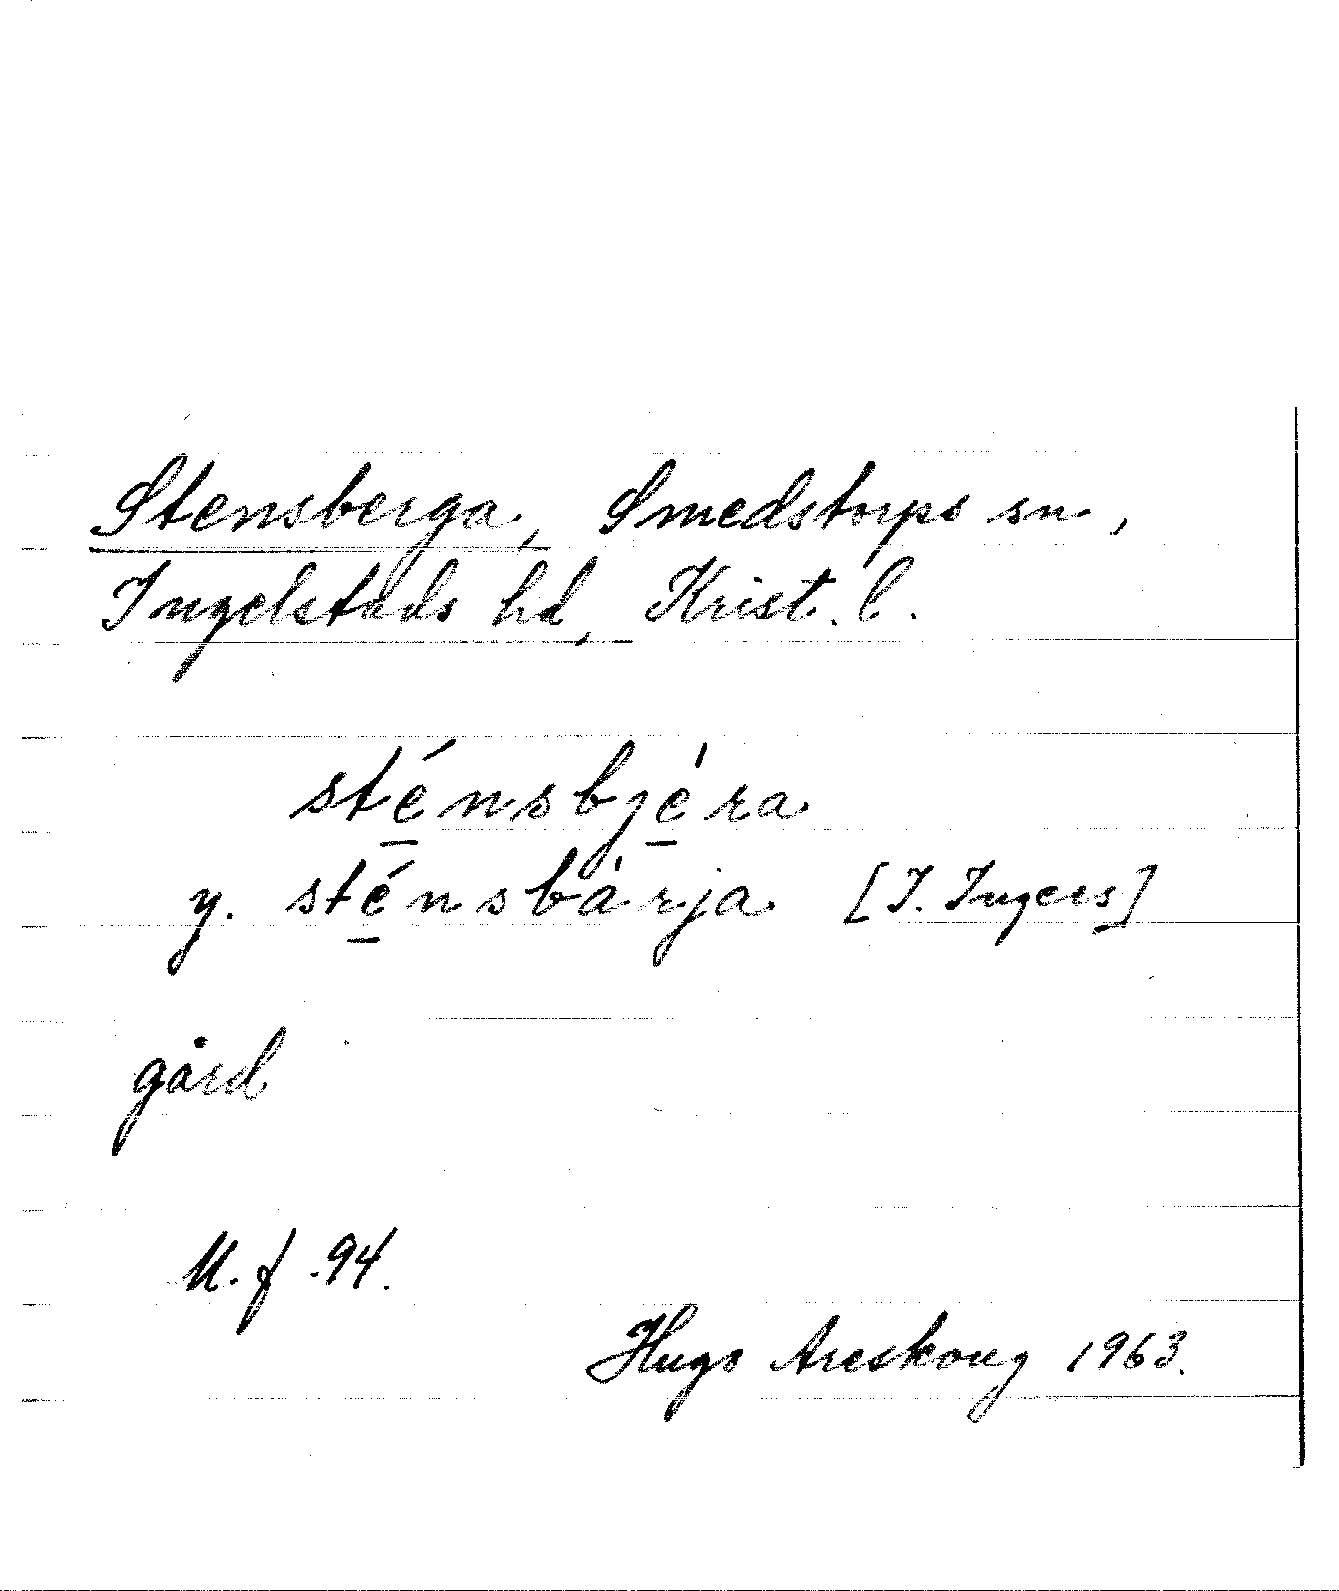 Stensberga, Smedstorps sn,
Ingelstads hd, Krist. l.
sténsbjèra
y. sténsbàrja [I. Ingers]
gård
M. f. 94.
Hugo Areskoug 1963.